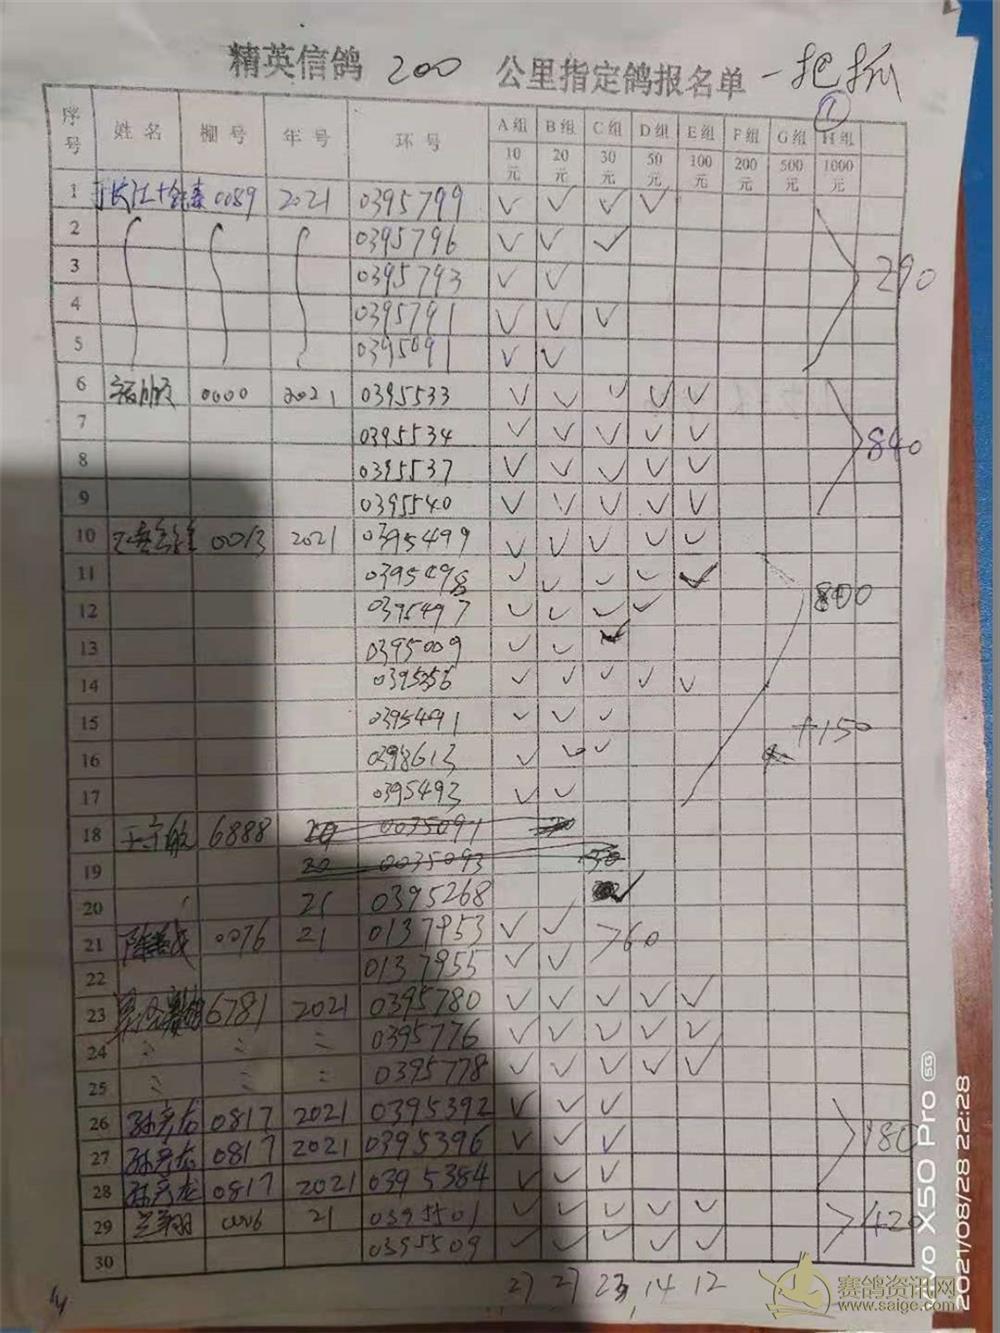 精英信鸽 200 公里指定鸽报名单 一把抓
①
序号 姓名 棚号 年号 环号 A组 B组 C组 D组 E组 F组 G组 H组
10元 20元 30元 50元 100元 200元 500元 1000元
1 0089 2021 0395799 ✓ ✓ ✓ ✓
2 0395796 ✓ ✓ ✓
3 0395793 ✓ ✓
290
4 0395791 ✓ ✓ ✓
5 0395091 ✓ ✓
6 0000 2021 0395533 ✓ ✓ ✓ ✓ ✓
7 0395534 ✓ ✓ ✓ ✓ ✓
840
8 0395537 ✓ ✓ ✓ ✓ ✓
9 0395540 ✓ ✓ ✓ ✓ ✓
10 0013 2021 0395499 ✓ ✓ ✓ ✓ ✓
11 0395498 ✓ ✓ ✓ ✓ ✓
12 0395497 ✓ ✓ ✓ ✓
13 0395009 ✓ ✓ ✓
14 0395256 ✓ ✓ ✓ ✓ ✓
15 0395491 ✓ ✓ ✓
+150
16 0398613 ✓ ✓ ✓
17 0395493 ✓ ✓
18 6888 20 0035091 20
19 20 0035093 30
20 21 0395268 ✓
21 0076 21 0137953 ✓ ✓
60
22 0137955 ✓ ✓
23 6781 2021 0395780 ✓ ✓ ✓ ✓ ✓
24 0395776 ✓ ✓ ✓ ✓ ✓
25 0395778 ✓ ✓ ✓ ✓ ✓
26 孙彦龙 0817 2021 0395392 ✓ ✓ ✓
27 孙彦龙 0817 2021 0395396 ✓ ✓ ✓
180
28 孙彦龙 0817 2021 0395384 ✓ ✓ ✓
29 兰翔 0006 21 0395501 ✓ ✓ ✓ ✓ ✓
420
30 0395509 ✓ ✓ ✓ ✓ ✓
27 27 23 14 12
vivo X50 Pro 5G
2021/08/28 22:28
赛鸽资讯网
www.saige.com